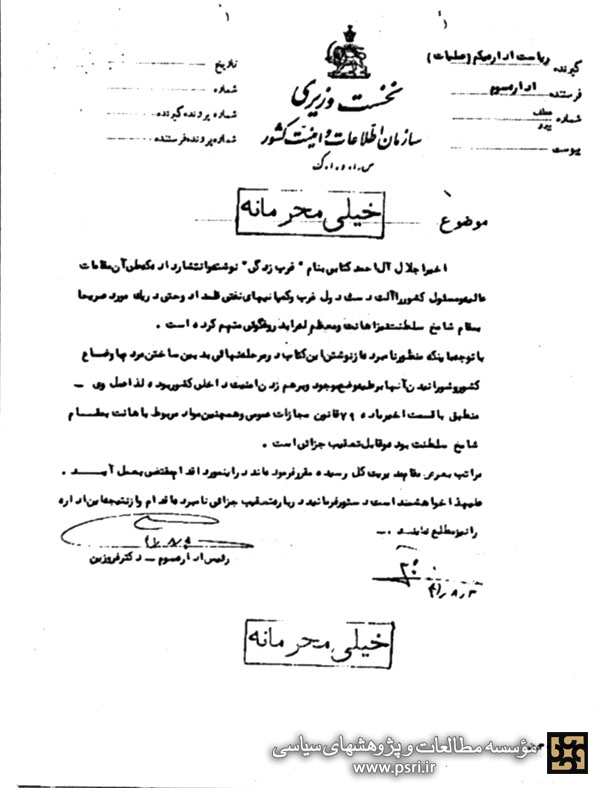 گیرنده ریاست اداره یکم (عملیات)
فرستنده اداره سوم
شماره عطف پیرو
پیوست
نخست وزیری
سازمان اطلاعات و امنیت کشور
س.ا.و.ا.ک
تاریخ
شماره
شماره پرونده گیرنده
شماره پرونده فرستنده
موضوع
خیلی محرمانه
اخیرا جلال آل احمد کتابی بنام "غرب زدگی" نوشته و انتشار داده که طی آن مقامات
عالیه و مسئول کشور را آلت دست دول غرب و کمپانیهای نفتی قلمداد و حتی در یک مورد صریحا
بمقام شامخ سلطنت نیز اهانت و معظم له را به دروغگوئی متهم کرده است .
با توجه باینکه منظور نامبرده از نوشتن این کتاب در مرحله نهائی بدبین ساختن مردم باوضاع
کشور و شورانیدن آنها بر علیه وضع موجود و برهم زدن امنیت داخلی کشور بوده لذا عمل وی -
منطبق با قسمت اخیر ماده ۷۹ قانون مجازات عمومی و همچنین مواد مربوط باهانت بمقام
شامخ سلطنت بوده و قابل تعقیب جزائی است .
مراتب بعرض مدیریت کل رسیده مقرر فرمودهاند در اینمورد اقدام مقتضی بعمل آید .
علیهذا خواهشمند است دستور فرمائید درباره تعقیب جزائی نامبرده اقدام و از نتیجه این اداره
را نیز مطلع نمایند .-
رئیس اداره سوم - دکتر فروزین
۴۱/۸/۳
خیلی محرمانه
مؤسسه مطالعات و پژوهشهای سیاسی
www.psri.ir